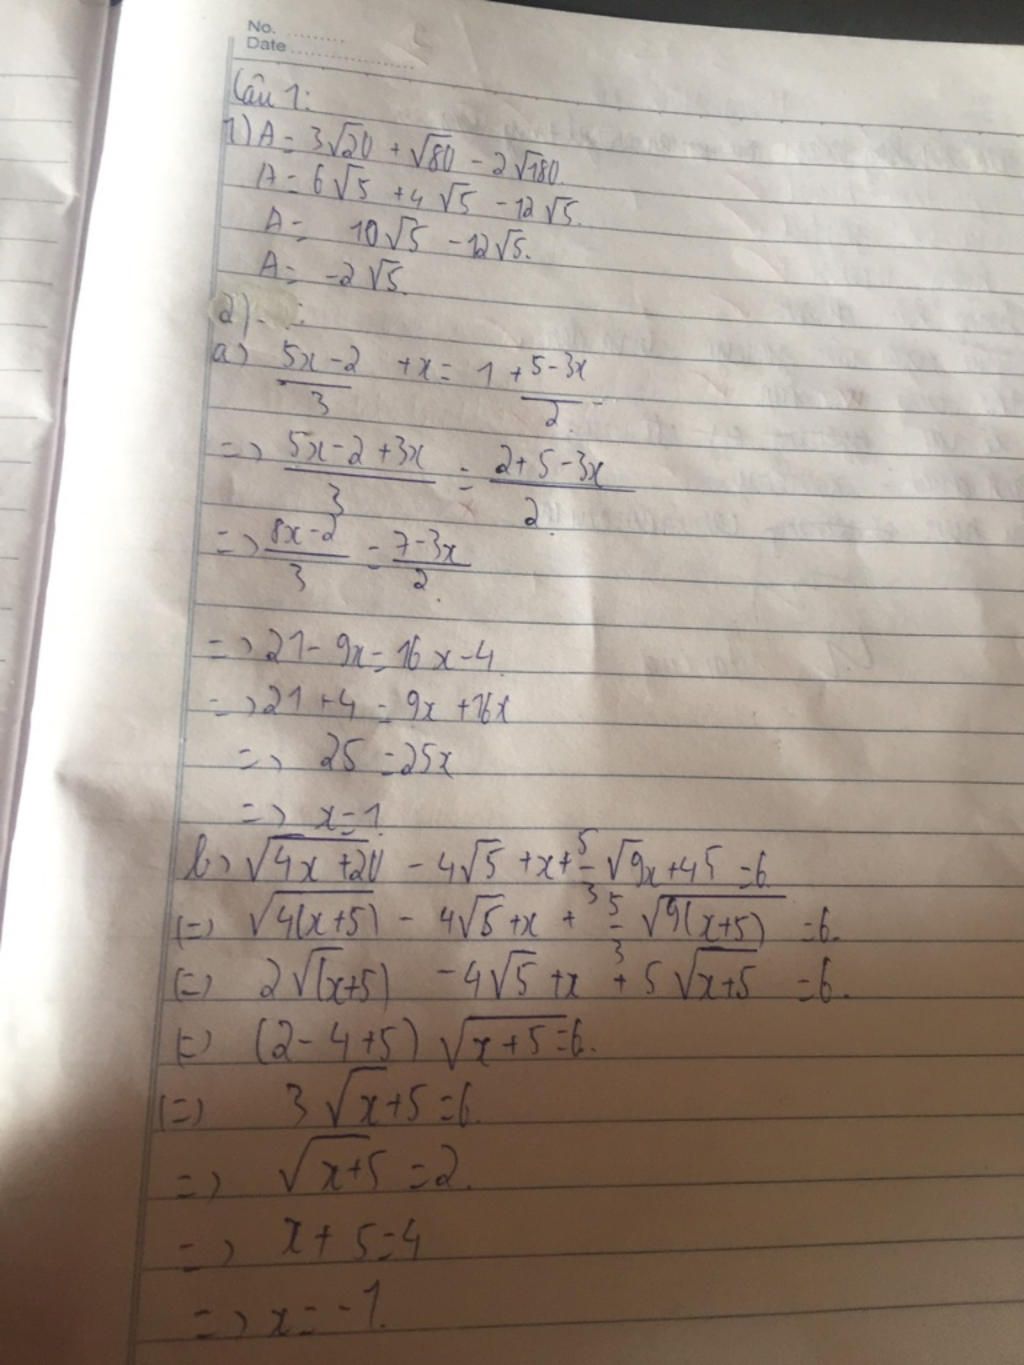 No. .........
Date ..................
Câu 1:
1) A = 3√20 + √80 - 2√180.
A = 6√5 + 4√5 - 12√5.
A = 10√5 - 12√5.
A = -2√5.
2) :
a) (5x-2)/3 + x = 1 + (5-3x)/2.
=> (5x-2+3x)/3 = (2+5-3x)/2.
=> (8x-2)/3 = (7-3x)/2.
=> 21 - 9x = 16x - 4
=> 21 + 4 = 9x + 16x
=> 25 = 25x
=> x = 1.
b) √(4x+20) - 4√5 + x + 5/3 √9x+45 = 6
(=) √(4(x+5)) - 4√5 + x + 5/3 √(9(x+5)) = 6.
(=) 2√(x+5) - 4√5 + x + 5√(x+5) = 6.
(=) (2-4+5) √(x+5=6.
(=) 3√x+5 = 6.
=> √x+5 = 2.
=> x + 5 = 4
=> x = -1.